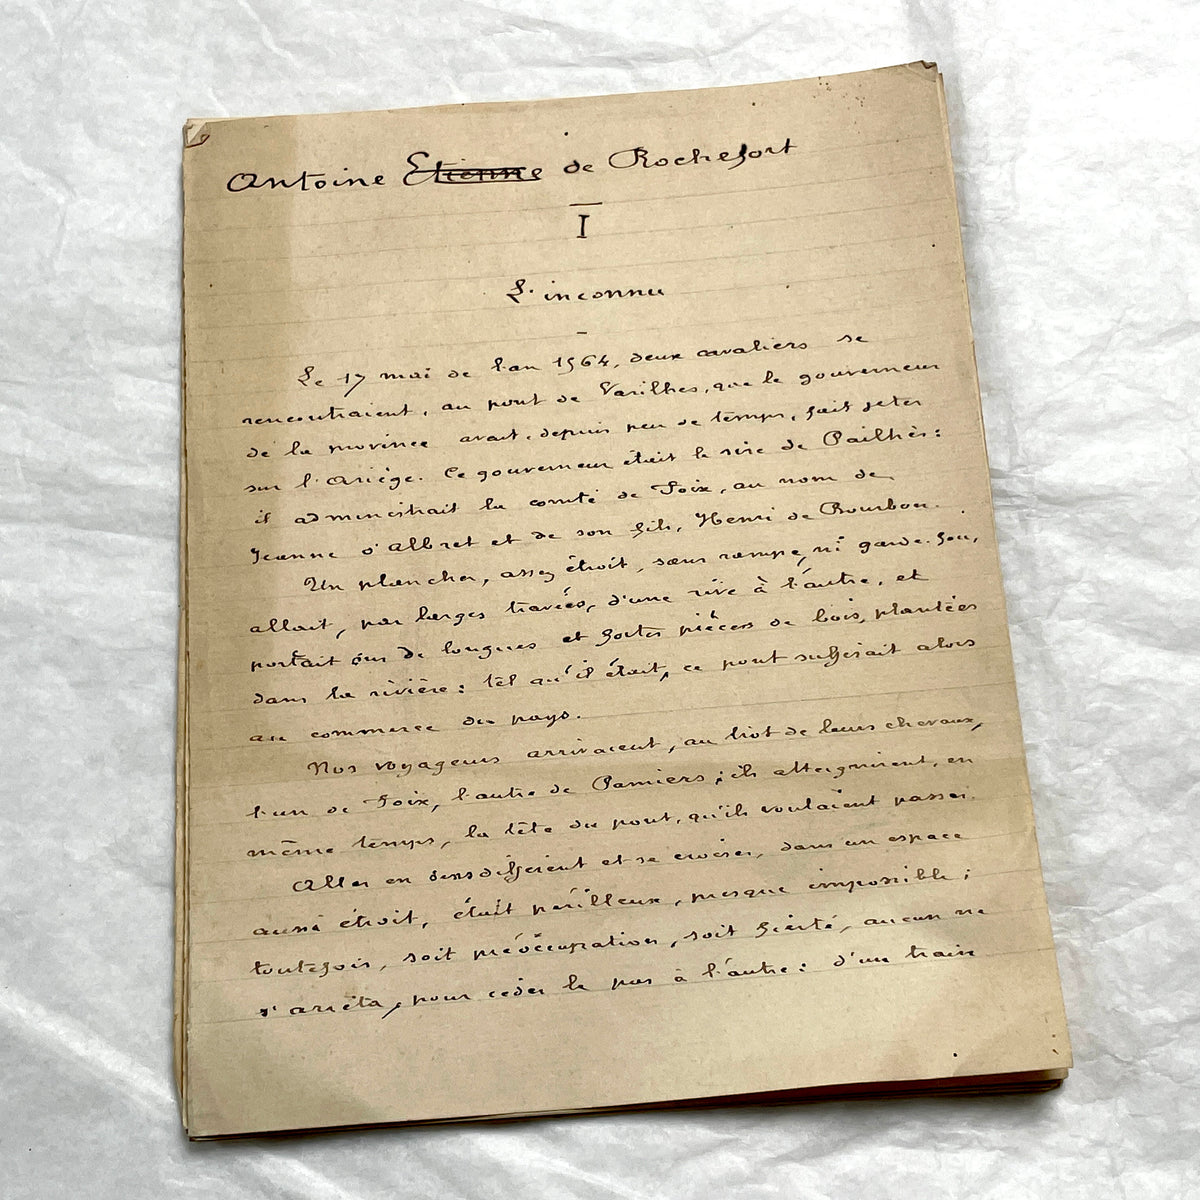 Antoine Etienne de Rochefort
I
L'inconnu
Le 17 mai de l'an 1564, deux cavaliers se
rencontraient, au pont de Varilhes, que le gouverneur
de la province avait, depuis peu de temps, fait jeter
sur l'Ariège. Ce gouverneur était le sire de Pailhès :
il administrait le comté de Foix, au nom de
Jeanne d'Albret et de son fils, Henri de Bourbon.
Un plancher, assez étroit, sans rampe, ni garde-fou,
allait, par larges travées, d'une rive à l'autre, et
portait sur de longues et fortes pièces de bois, plantées
dans la rivière : tel qu'il était, ce pont suffisait alors
au commerce du pays.
Nos voyageurs arrivaient, au trot de leurs chevaux,
l'un de Foix, l'autre de Pamiers ; ils atteignirent, en
même temps, la tête du pont, qu'ils voulaient passer.
Aller en sens différent et se croiser, dans un espace
aussi étroit, était périlleux, presque impossible ;
toutefois, soit préoccupation, soit fierté, aucun ne
s'arrêta, pour céder le pas à l'autre : d'un train